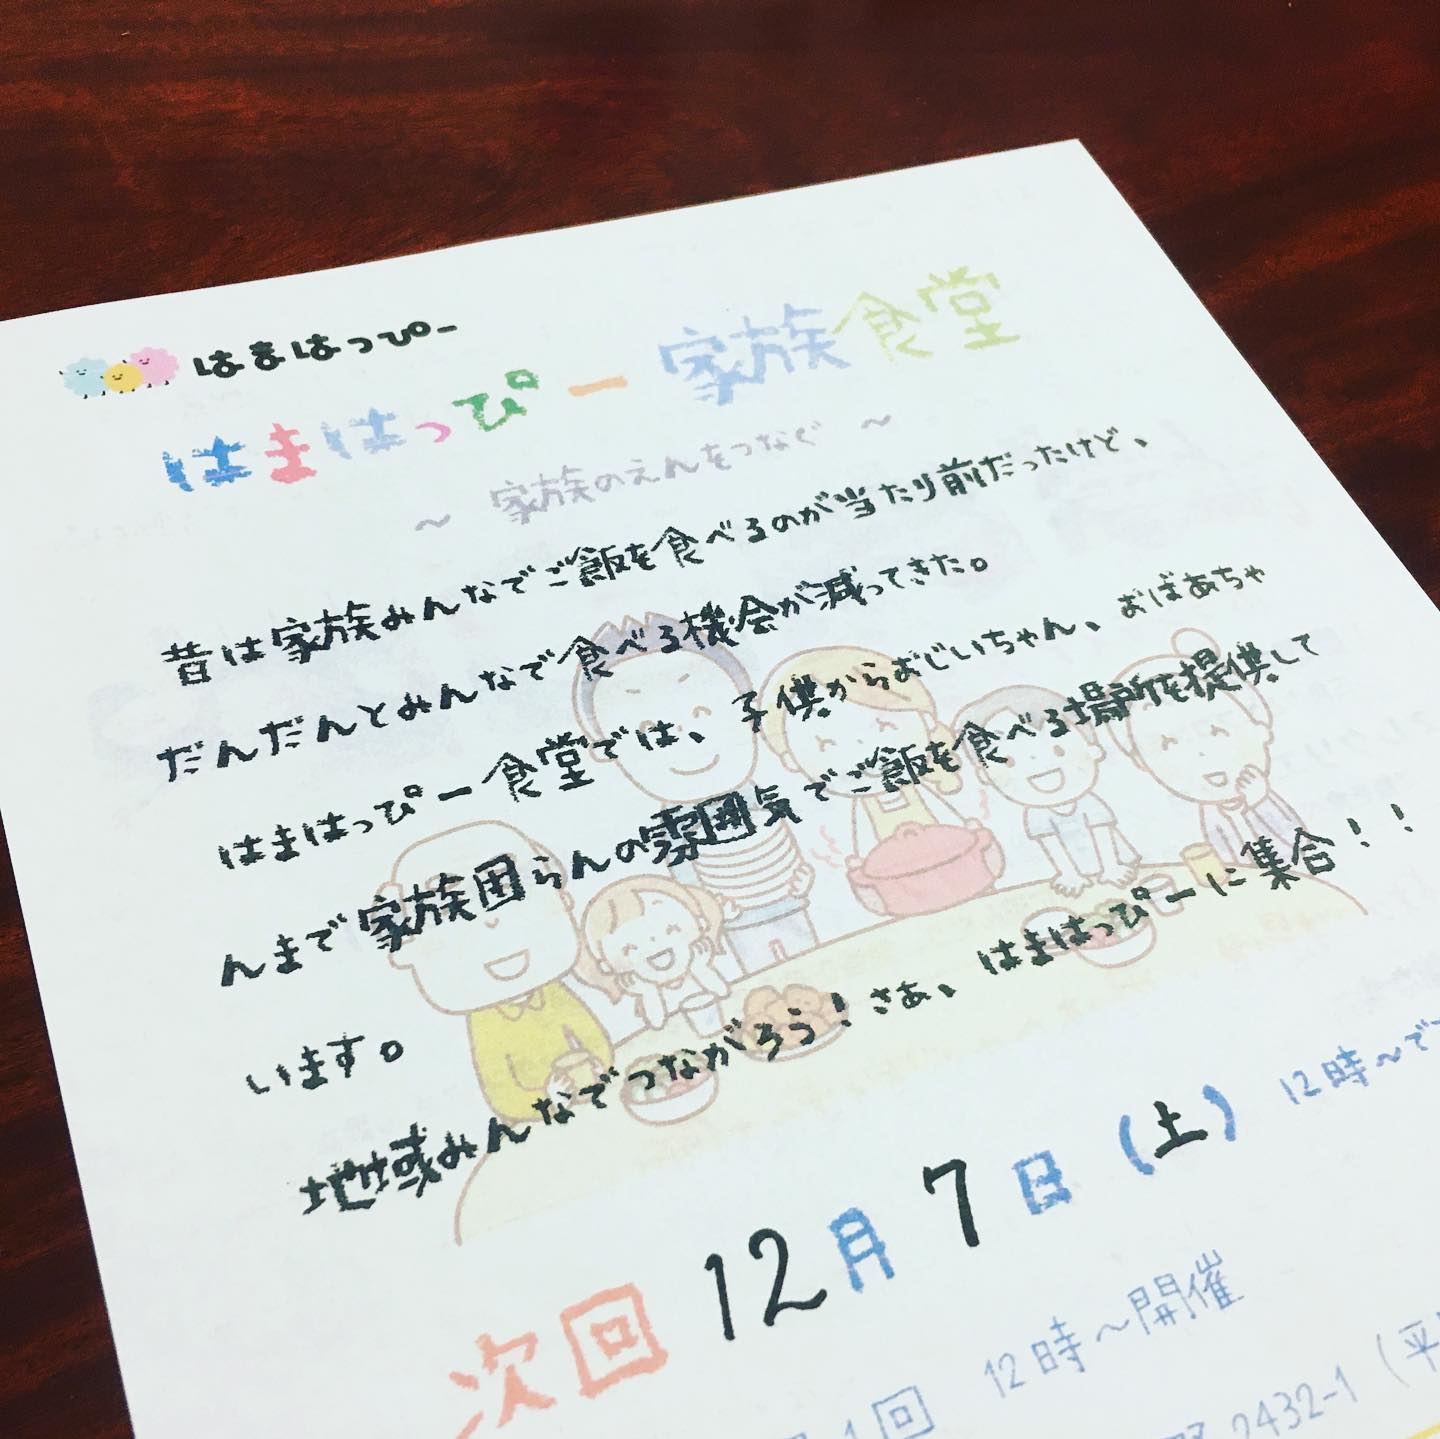 はまはっぴー
はまはっぴー家族食堂
～ 家族のえんをつなぐ ～
昔は家族みんなでご飯を食べるのが当たり前だったけど、
だんだんとみんなで食べる機会が減ってきた。
はまはっぴー食堂では、子供からおじいちゃん、おばあちゃ
んまで家族団らんの雰囲気でご飯を食べる場所を提供して
います。
地域みんなでつながろう！さあ、はまはっぴーに集合！！
次回 12月7日(土) 12時～で
1回 12時～開催
2432-1（平